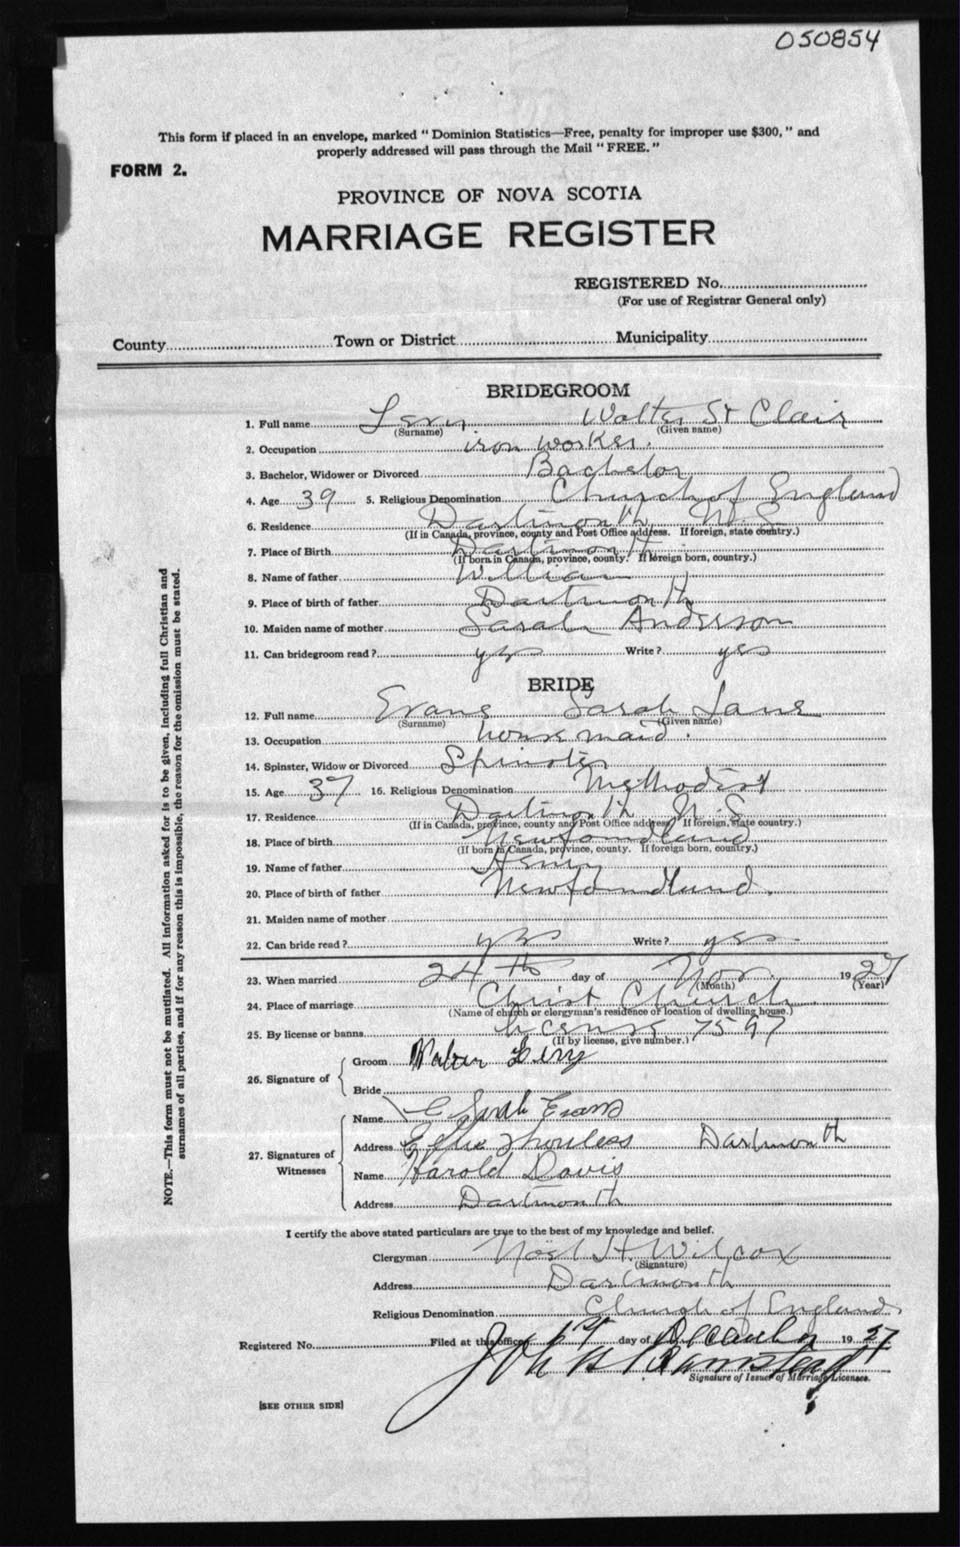 050854
This form if placed in an envelope, marked " Dominion Statistics—Free, penalty for improper use $300, " and
properly addressed will pass through the Mail " FREE. "
FORM 2.
PROVINCE OF NOVA SCOTIA
MARRIAGE REGISTER
REGISTERED No.
(For use of Registrar General only)
County Town or District Municipality
BRIDEGROOM
1. Full name Walter St Clair
(Surname) (Given name)
2. Occupation iron worker.
3. Bachelor, Widower or Divorced Bachelor
4. Age 39 5. Religious Denomination Church of England
6. Residence Dartmouth N.S.
(If in Canada, province, county and Post Office address. If foreign, state country.)
7. Place of Birth Dartmouth
(If born in Canada, province, county. If foreign born, country.)
8. Name of father William
9. Place of birth of father Dartmouth
10. Maiden name of mother Sarah Anderson
11. Can bridegroom read ? yes Write ? yes
BRIDE
12. Full name Evans Sarah Jane
(Surname) (Given name)
13. Occupation house maid.
14. Spinster, Widow or Divorced Spinster
15. Age 37 16. Religious Denomination Methodist
17. Residence Dartmouth N.S.
(If in Canada, province, county and Post Office address. If foreign, state country.)
18. Place of birth Newfoundland
(If born in Canada, province, county. If foreign born, country.)
19. Name of father Henry
20. Place of birth of father Newfoundland.
21. Maiden name of mother
22. Can bride read ? yes Write ? yes
23. When married 24th day of Nov. 1927
(Month) (Year)
24. Place of marriage Christ Church
(Name of church or clergyman's residence or location of dwelling house.)
25. By license or banns license 7597
(If by license, give number.)
26. Signature of Groom Walter
Bride
27. Signatures of Witnesses Name Sarah Evans
Address Dartmouth
Name Harold Davis
Address Dartmouth
I certify the above stated particulars are true to the best of my knowledge and belief.
Clergyman Noel H. Wilcox
(Signature)
Address Dartmouth
Religious Denomination Church of England.
Registered No. Filed at this office 1st day of December 1927
Signature of Issuer of Marriage Licenses.
(SEE OTHER SIDE)
NOTE.—This form must not be mutilated. All information asked for is to be given, including full Christian and
surnames of all parties, and if for any reason this is impossible, the reason for the omission must be stated.